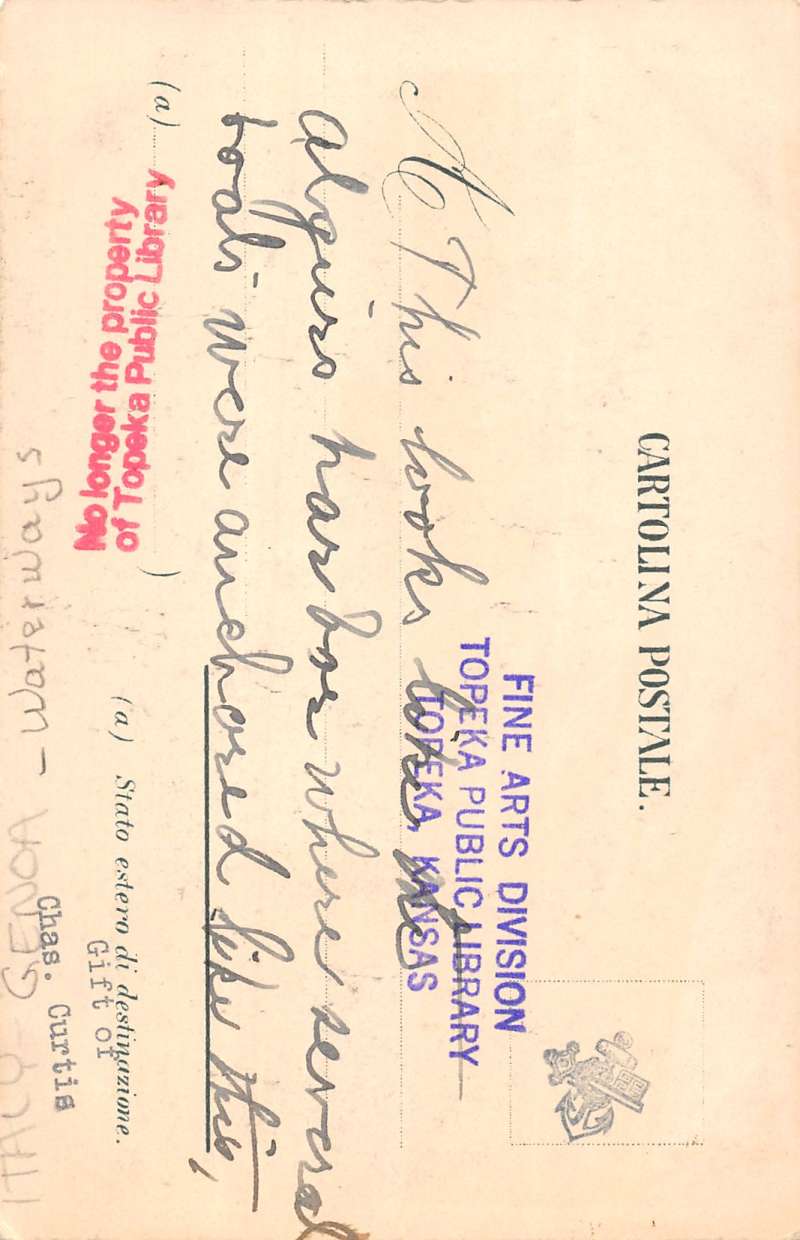 CARTOLINA POSTALE.
FINE ARTS DIVISION
TOPEKA PUBLIC LIBRARY
TOPEKA, KANSAS
This looks like the
algiers harbor where several
boats were anchored like this,
(a) )
No longer the property
of Topeka Public Library
(a) Stato estero di destinazione.
Gift of
Chas. Curtis
ITALY - GENOA - Waterways